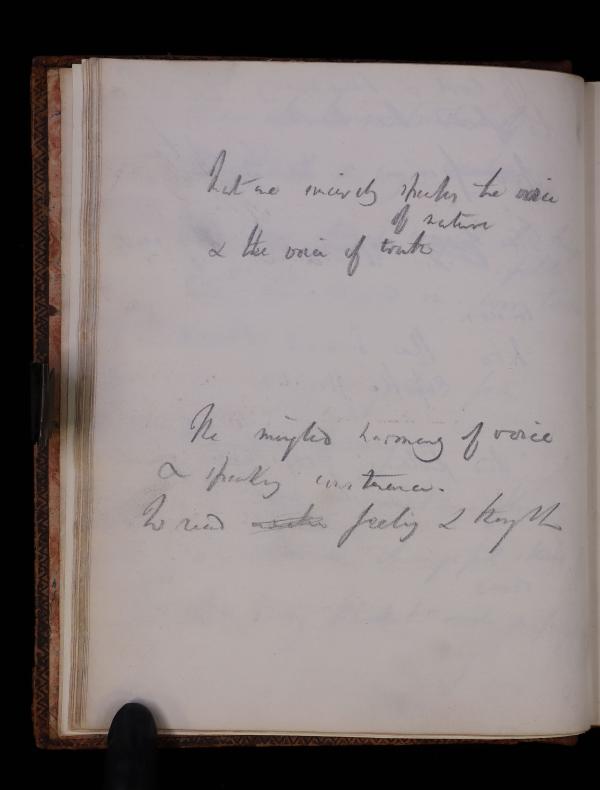 that are sincerely speaks the voice
of nature
& the voice of truth
The mingled harmony of voice
& speaking countenance.
To read feeling &